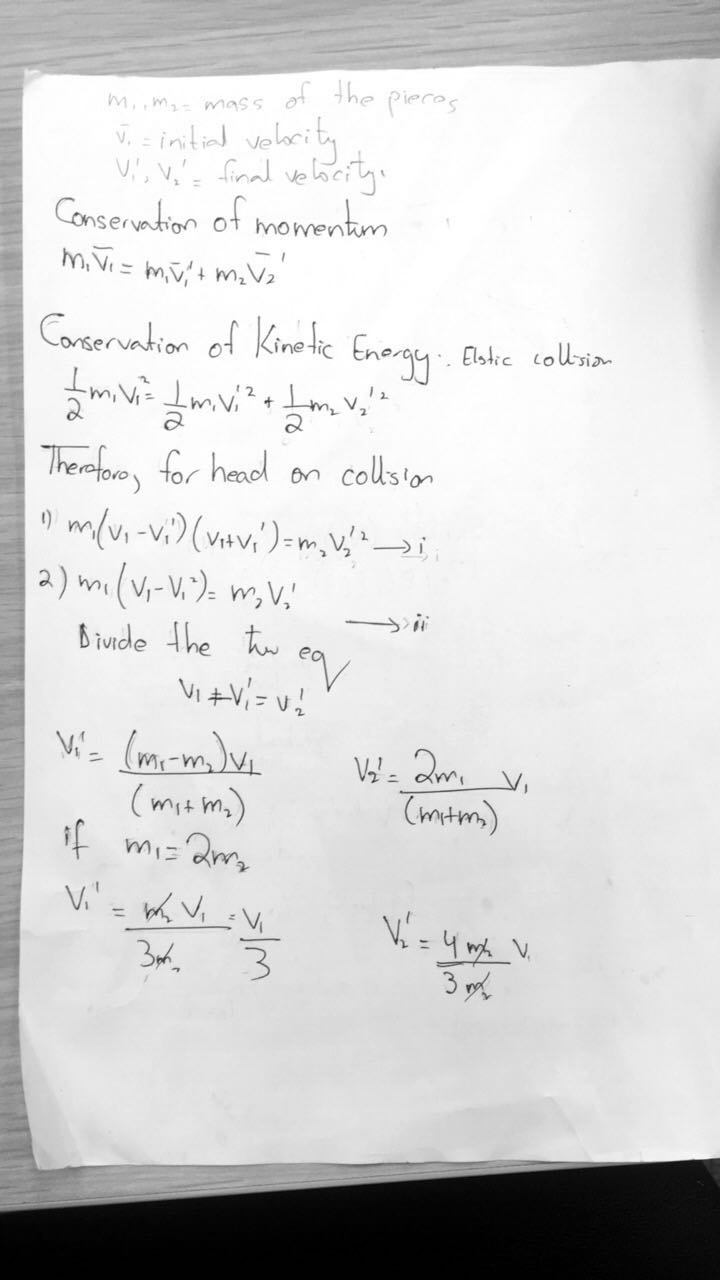 m₁, m₂ = mass of the pieces
v̄₁ = initial velocity
V₁', V₂' = final velocity.
Conservation of momentum
m₁V̄₁ = m₁V̄₁' + m₂V̄₂'
Conservation of Kinetic Energy ∴ Elstic collision
1/2 m₁V₁² = 1/2 m₁V₁'² + 1/2 m₂V₂'²
Therefore, for head on collision
1) m₁(V₁ - V₁')(V₁ + V₁') = m₂V₂'² → i
2) m₁(V₁ - V₁²) = m₂V₂' → ii
Divide the two eq
V₁ + V₁' = V₂'
V₁' = (m₁-m₂)V₁ / (m₁+m₂) V₂' = 2m₁ / (m₁+m₂) V₁
if m₁ = 2m₂
V₁' = m₂V₁ / 3m₂ = V₁/3 V₂' = 4m₂ / 3m₂ V₁